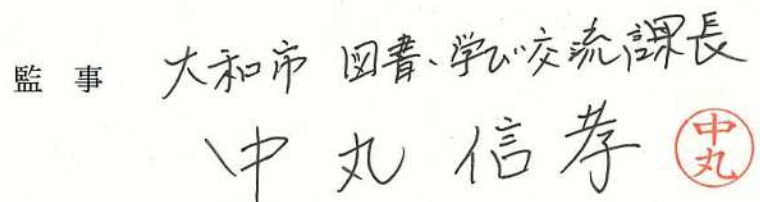 監 事 大和市 図書・学び交流課長
中 丸 信 孝 中丸